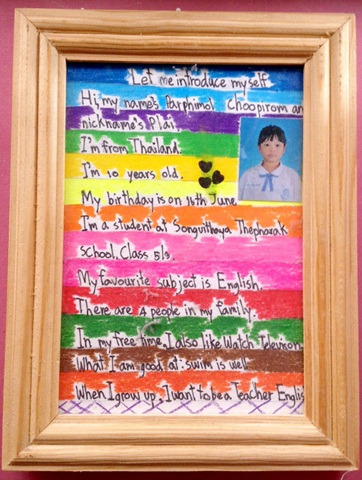 Let me introduce myself
Hi, my name's Parphimol Choopirom an
nickname's Plai.
I'm from Thailand.
I'm 10 years old.
My birthday is on 16th June
I'm a student at Songvithaya Thepharak
school. Class 5/2
My favourite subject is English.
There are 4 people in my family.
In my free time, I also like Watch Televition
What I am good at: swim is well
When I grow up, I want to be a Teacher Englis